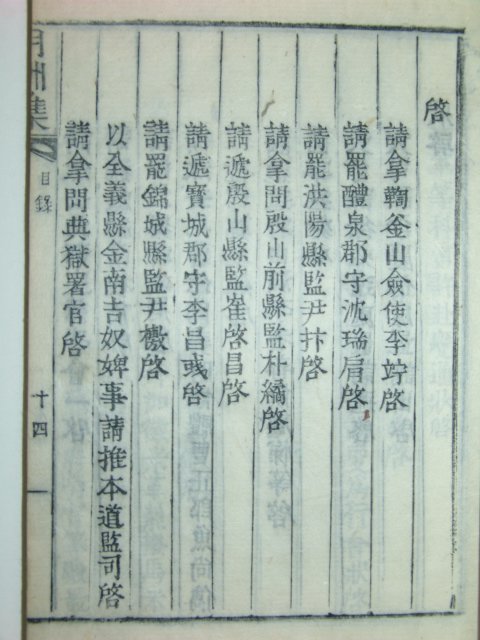 啓
請拿鞫釜山僉使李竚啓
請罷醴泉郡守沈瑞肩啓
請罷洪陽縣監尹抃啓
請拿問殷山前縣監朴繘啓
請遞殷山縣監崔啓昌啓
請遞寳城郡守李昌彧啓
請罷錦城縣監尹㩳啓
以全義縣金南吉奴婢事請推本道監司啓
請拿問典獄署官啓
月洲集
目錄
十四